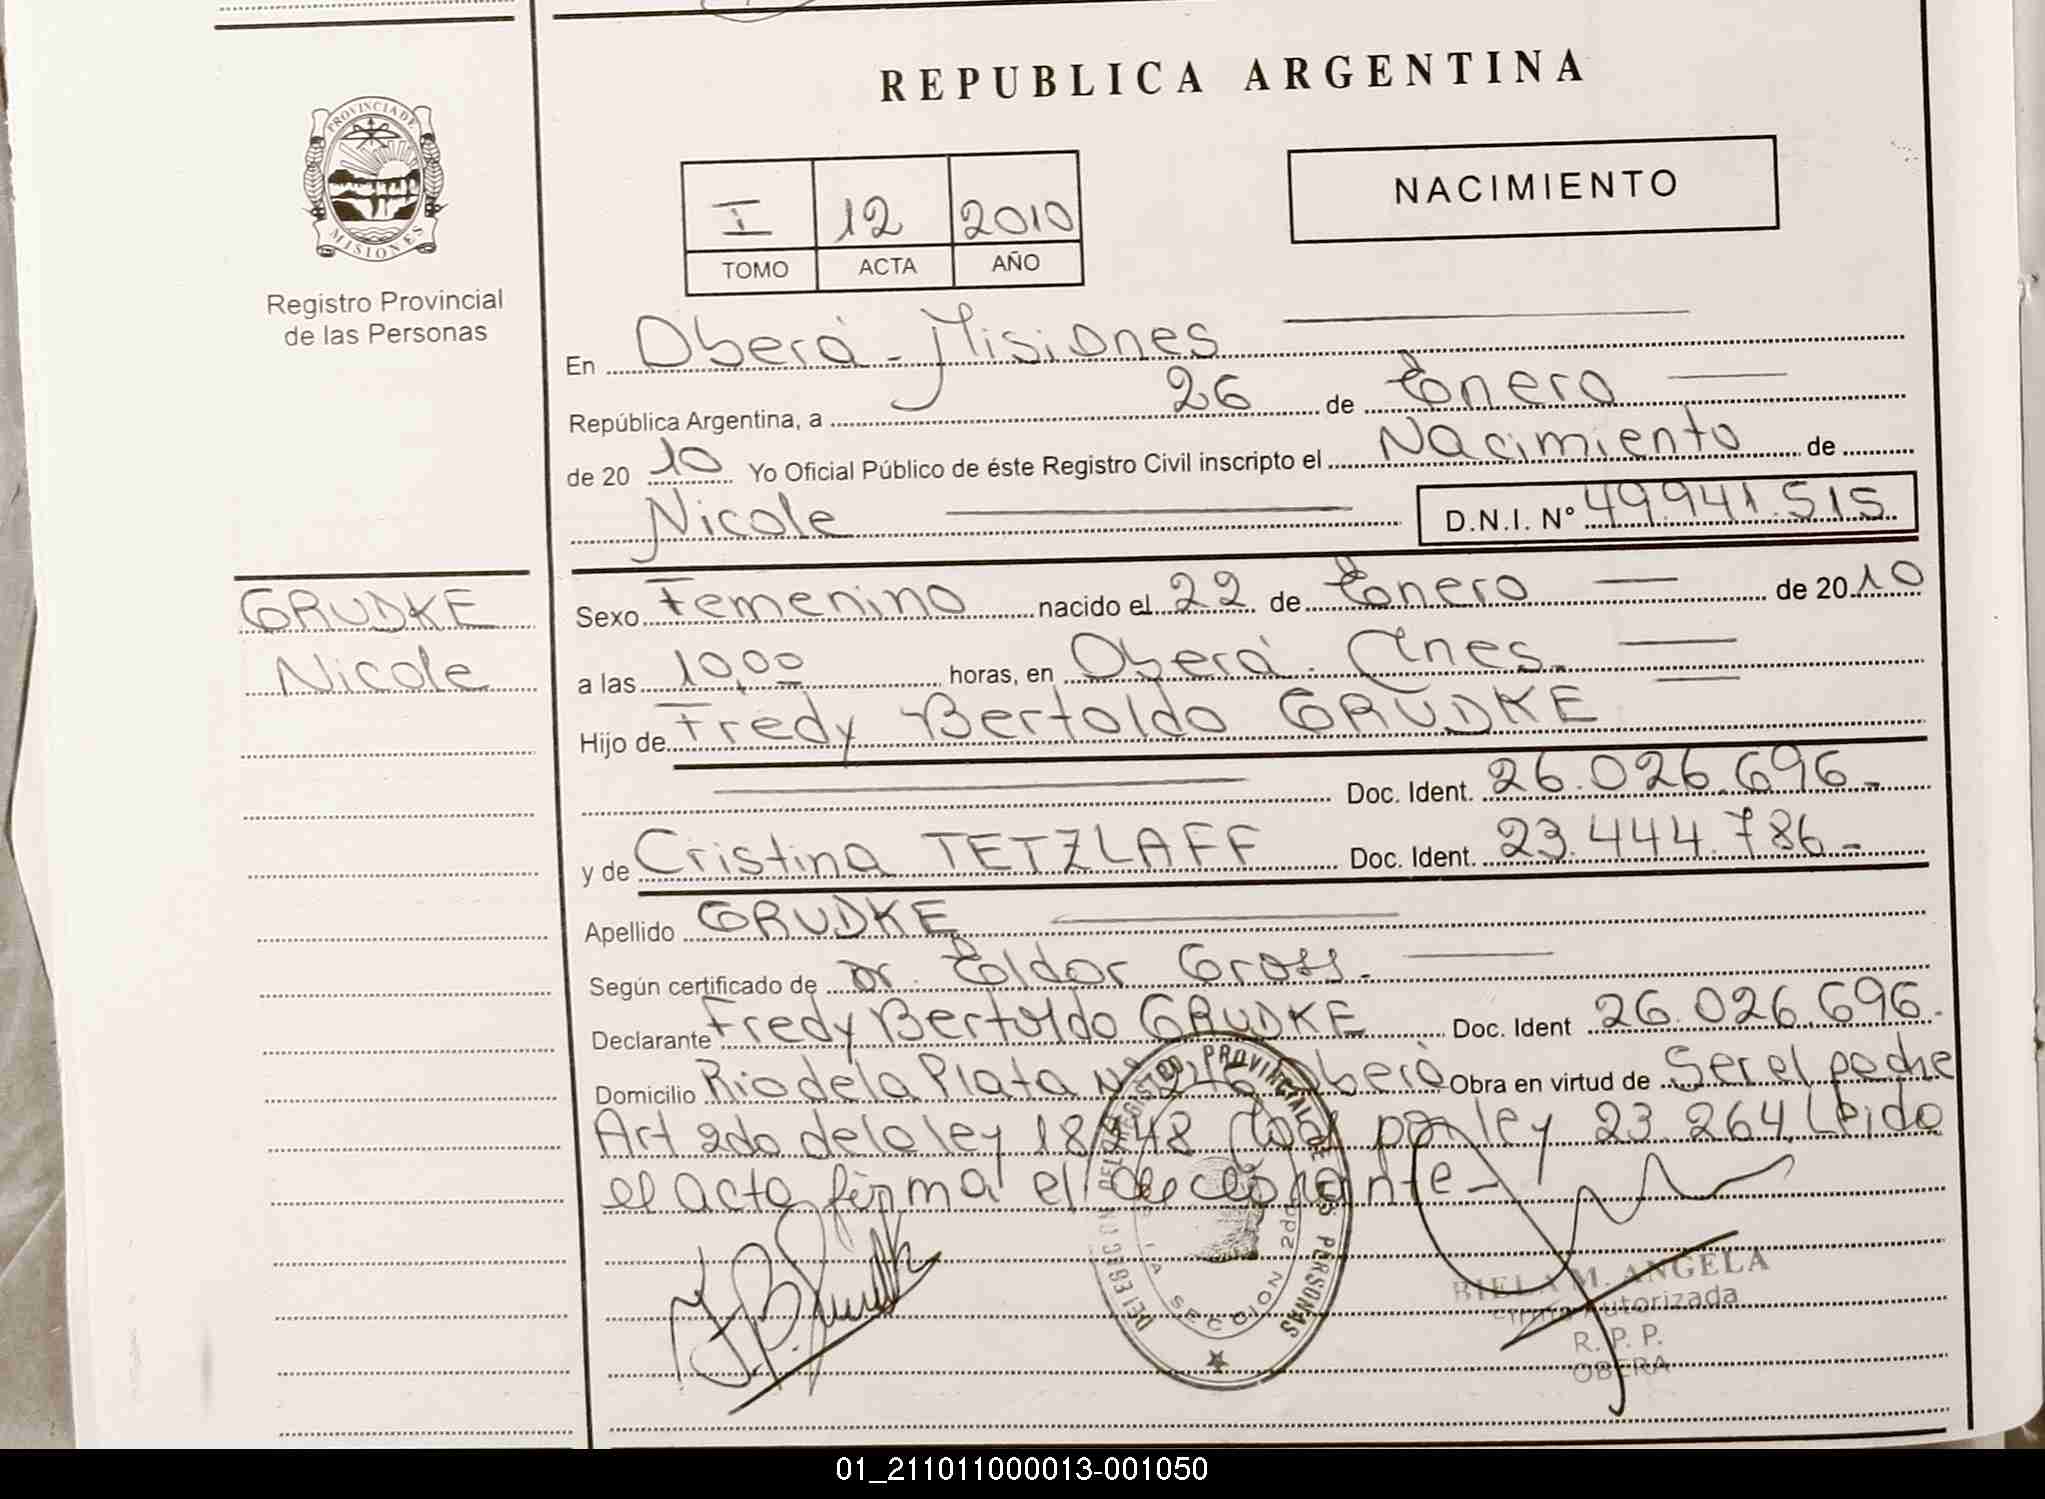 REPUBLICA ARGENTINA
PROVINCIA DE
MISIONES
Registro Provincial
de las Personas
I 12 2010
TOMO ACTA AÑO
NACIMIENTO
En Oberá - Misiones
República Argentina, a 26 de Enero
de 20 10 Yo Oficial Público de éste Registro Civil inscripto el Nacimiento de
Nicole D.N.I. N° 49.941.515
GRUDKE
Nicole
Sexo Femenino nacido el 22 de Enero de 2010
a las 10,00 horas, en Oberá. Mnes.
Hijo de Fredy Bertoldo GRUDKE
Doc. Ident. 26.026.696.-
y de Cristina TETZLAFF Doc. Ident. 23.444.786-
Apellido GRUDKE
Según certificado de Dr. Eldor Gross.
Declarante Fredy Bertoldo GRUDKE Doc. Ident 26.026.696.
Domicilio Rio de la Plata Nº Oberá Obra en virtud de Ser el padre
Art 2do de la ley 18.248 por ley 23.264. Leido
el acta firma el declarante-
DEL REGISTRO PROVINCIAL DE LAS PERSONAS
SECCION 2da
M. ANGELA
Firma Autorizada
R. P. P.
OBERA
01_211011000013-001050